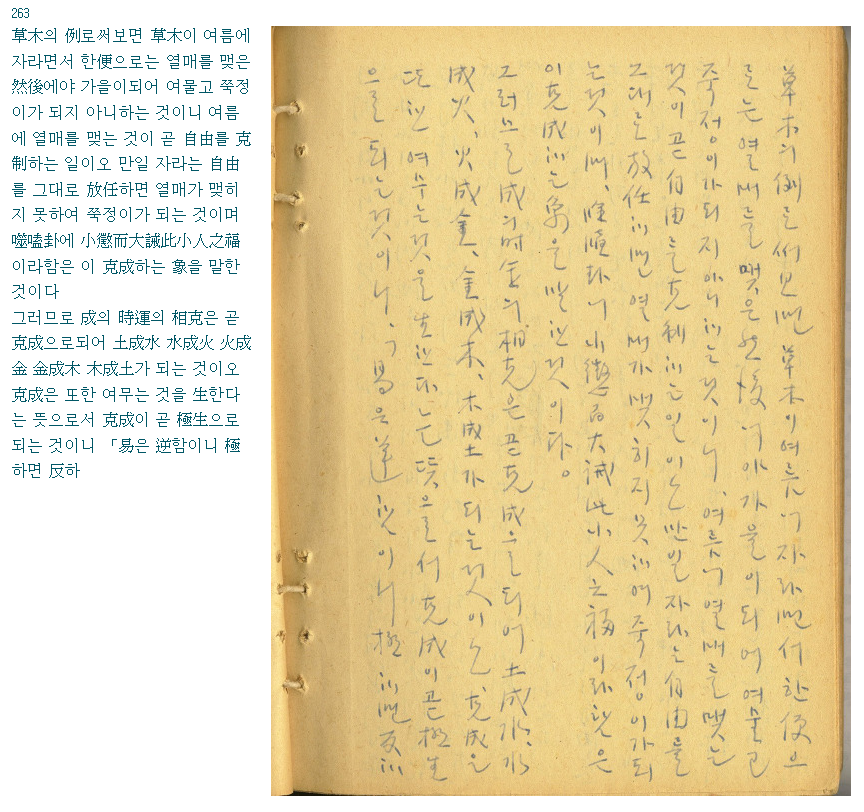 263
草木의 例로써보면 草木이 여름에
자라면서 한便으로는 열매를 맺은
然後에야 가을이되어 여물고 쭉정
이가 되지 아니하는 것이니 여름
에 열매를 맺는 것이 곧 自由를 克
制하는 일이오 만일 자라는 自由
를 그대로 放任하면 열매가 맺히
지 못하여 쭉정이가 되는 것이며
噬嗑卦에 小懲而大誡此小人之福
이라함은 이 克成하는 象을 말한
것이다
그러므로 成의 時運의 相克은 곧
克成으로되어 土成水 水成火 火成
金 金成木 木成土가 되는 것이오
克成은 또한 여무는 것을 生한다
는 뜻으로서 克成이 곧 極生으로
되는 것이니 「易은 逆함이니 極
하면 反하
草木의 例로써보면 草木이여름에자라면서 한便으
로는 열매를 맺은 然後에야 가을이되여 여물고
죽정이가되지아니하는것이니、여름에 열매를 맺는
것이 곧 自由를 克制하는일이오 만일 자라는 自由를
그대로 放任하면 열매가 맺히지 못하여 죽정이가되
는것이며、噬嗑卦에 小懲而大誡此小人之福이라함은
이 克成하는 象을 말한것이다。
그러므로 成의 時運의 相克은 곧 克成으로되어 土成水、水
成火、火成金、金成木、木成土가 되는것이오、克成은
또한 여무는것을 生한다는 뜻으로서 克成이곧 極生
으로 되는것이니 「易은 逆함이니 極하면 反하